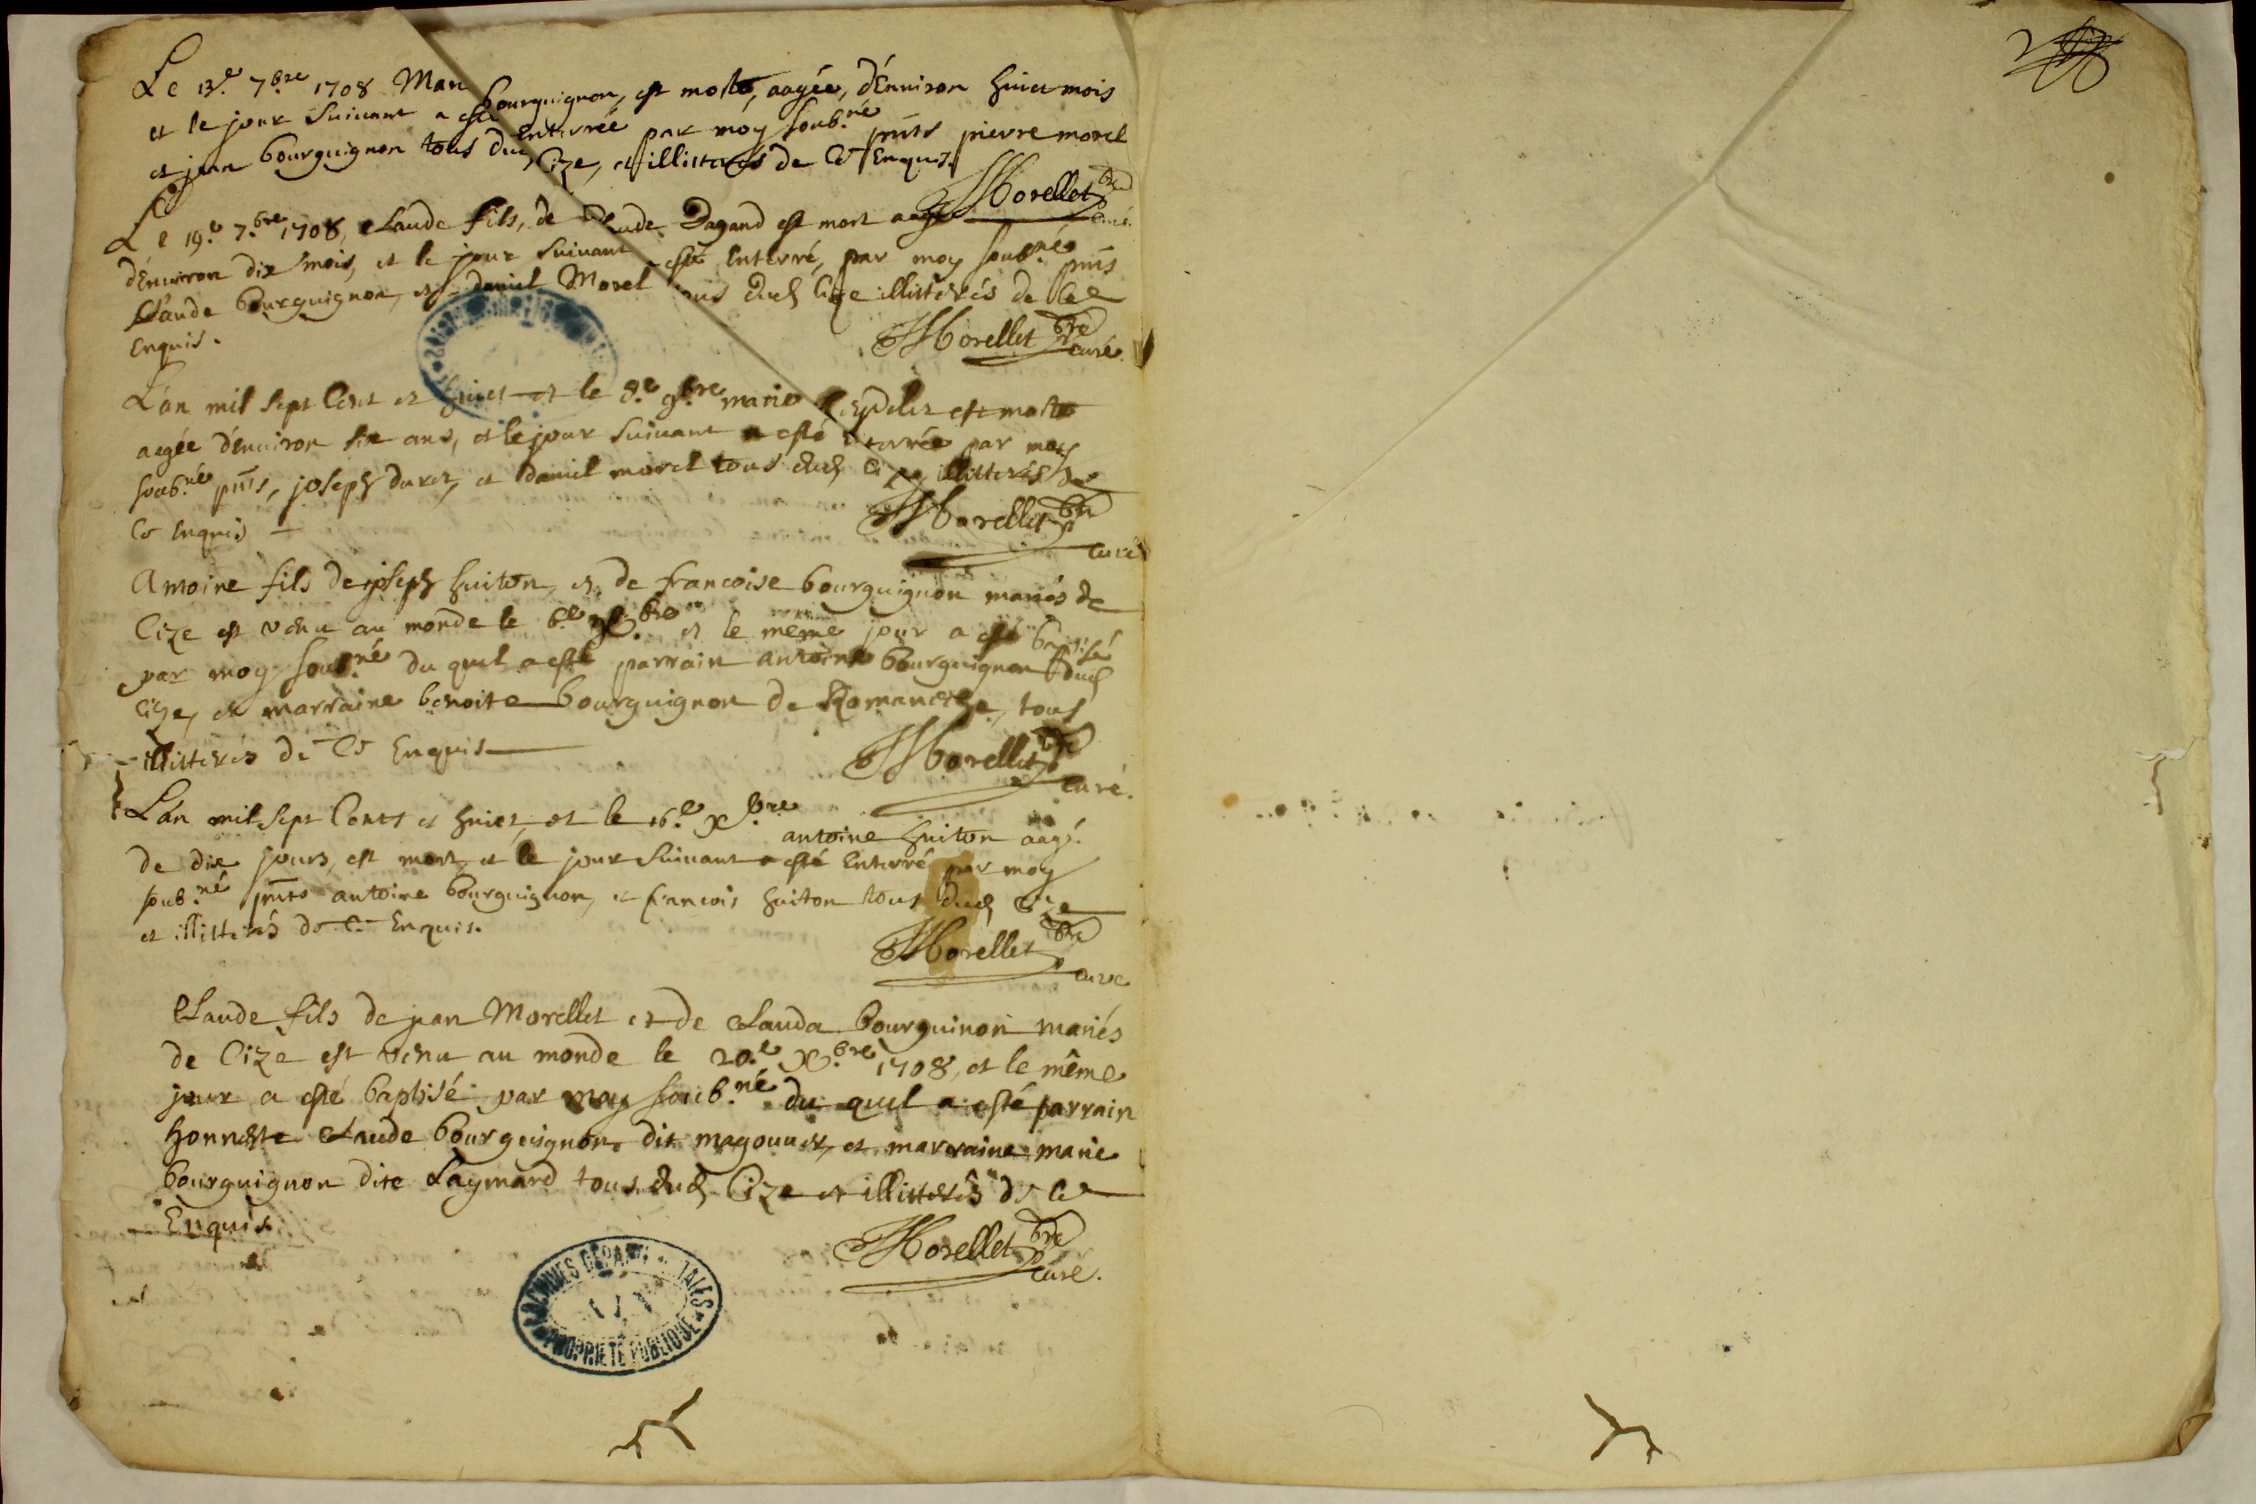 Le 13.e 7.bre 1708 Mar bourguignon, est morte, aagée, d'Environ huict mois
et le jour Suivant a esté Enterrée par moy soub.né pnts pierre morel
et jean bourguignon tous dud Cize, et illitterés de ce Enquis.
Morellet pbre curé
Le 19.e 7.bre 1708, Claude fils, de Claude Dagand est mort aagé
d'Environ dix mois, et le jour Suivant esté Enterré, par moy soub.né pnts
Claude bourguignon, et daniel Morel tous dud Cize illitterés de ce
Enquis.
Morellet pbre curé
L'an mil sept Cent et huict et le 8.e 9.bre marie est morte
aagée d'environ six ans, et le jour suivant a esté Enterrée par moy
soub.né pnts, joseph duret, et daniel morel tous dud Cize illitterés de
Ce Enquis
Morellet pbre curé
Antoine fils de joseph huiton, et de francoise bourguignon mariés de
Cize est venu au monde le 6.e X.bre et le même jour a esté baptisé
par moy soub.né du quel a esté parrain antoine bourguignon dud
Cize, et marraine benoite bourguignon de Romaneche, tous
illitterés de Ce Enquis
Morellet pbre curé.
L'an mil sept Cents et huict, et le 16.e X.bre antoine huiton aagé
de dix jours, est mort, et le jour suivant a esté Enterré par moy
soub.né pnts antoine bourguignon, et francois huiton tous dud Cize
et illitterés de Ce Enquis.
Morellet pbre curé
Claude fils de jean Morellet et de Clauda bourguinon mariés
de Cize est venu au monde le 20.e X.bre 1708, et le même
jour a esté baptisé par moy soub.né du quel a esté parrain
honneste Claude bourguignon dit magounet, et marraine marie
bourguignon dite Laymard tous dud Cize et illitterés de Ce
Enquis
Morellet pbre curé.
ARCHIVES DÉPARTEMENTALES
AIN
PROPRIÉTÉ PUBLIQUE